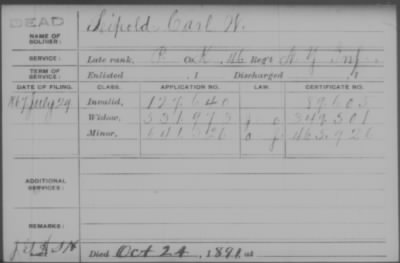 DEAD
NAME OF SOLDIER: Leipold, Carl W.
SERVICE: Late rank, P Co. K, 46 Reg't N.Y. Inf
TERM OF SERVICE: Enlisted , 1 Discharged , 1
DATE OF FILING. CLASS. APPLICATION NO. LAW. CERTIFICATE NO.
1867 July 29 Invalid, 127640 89603
Widow, 531973 349301
Minor, 641526 463926
ADDITIONAL SERVICES:
REMARKS:
Died Oct 24, 1891, at